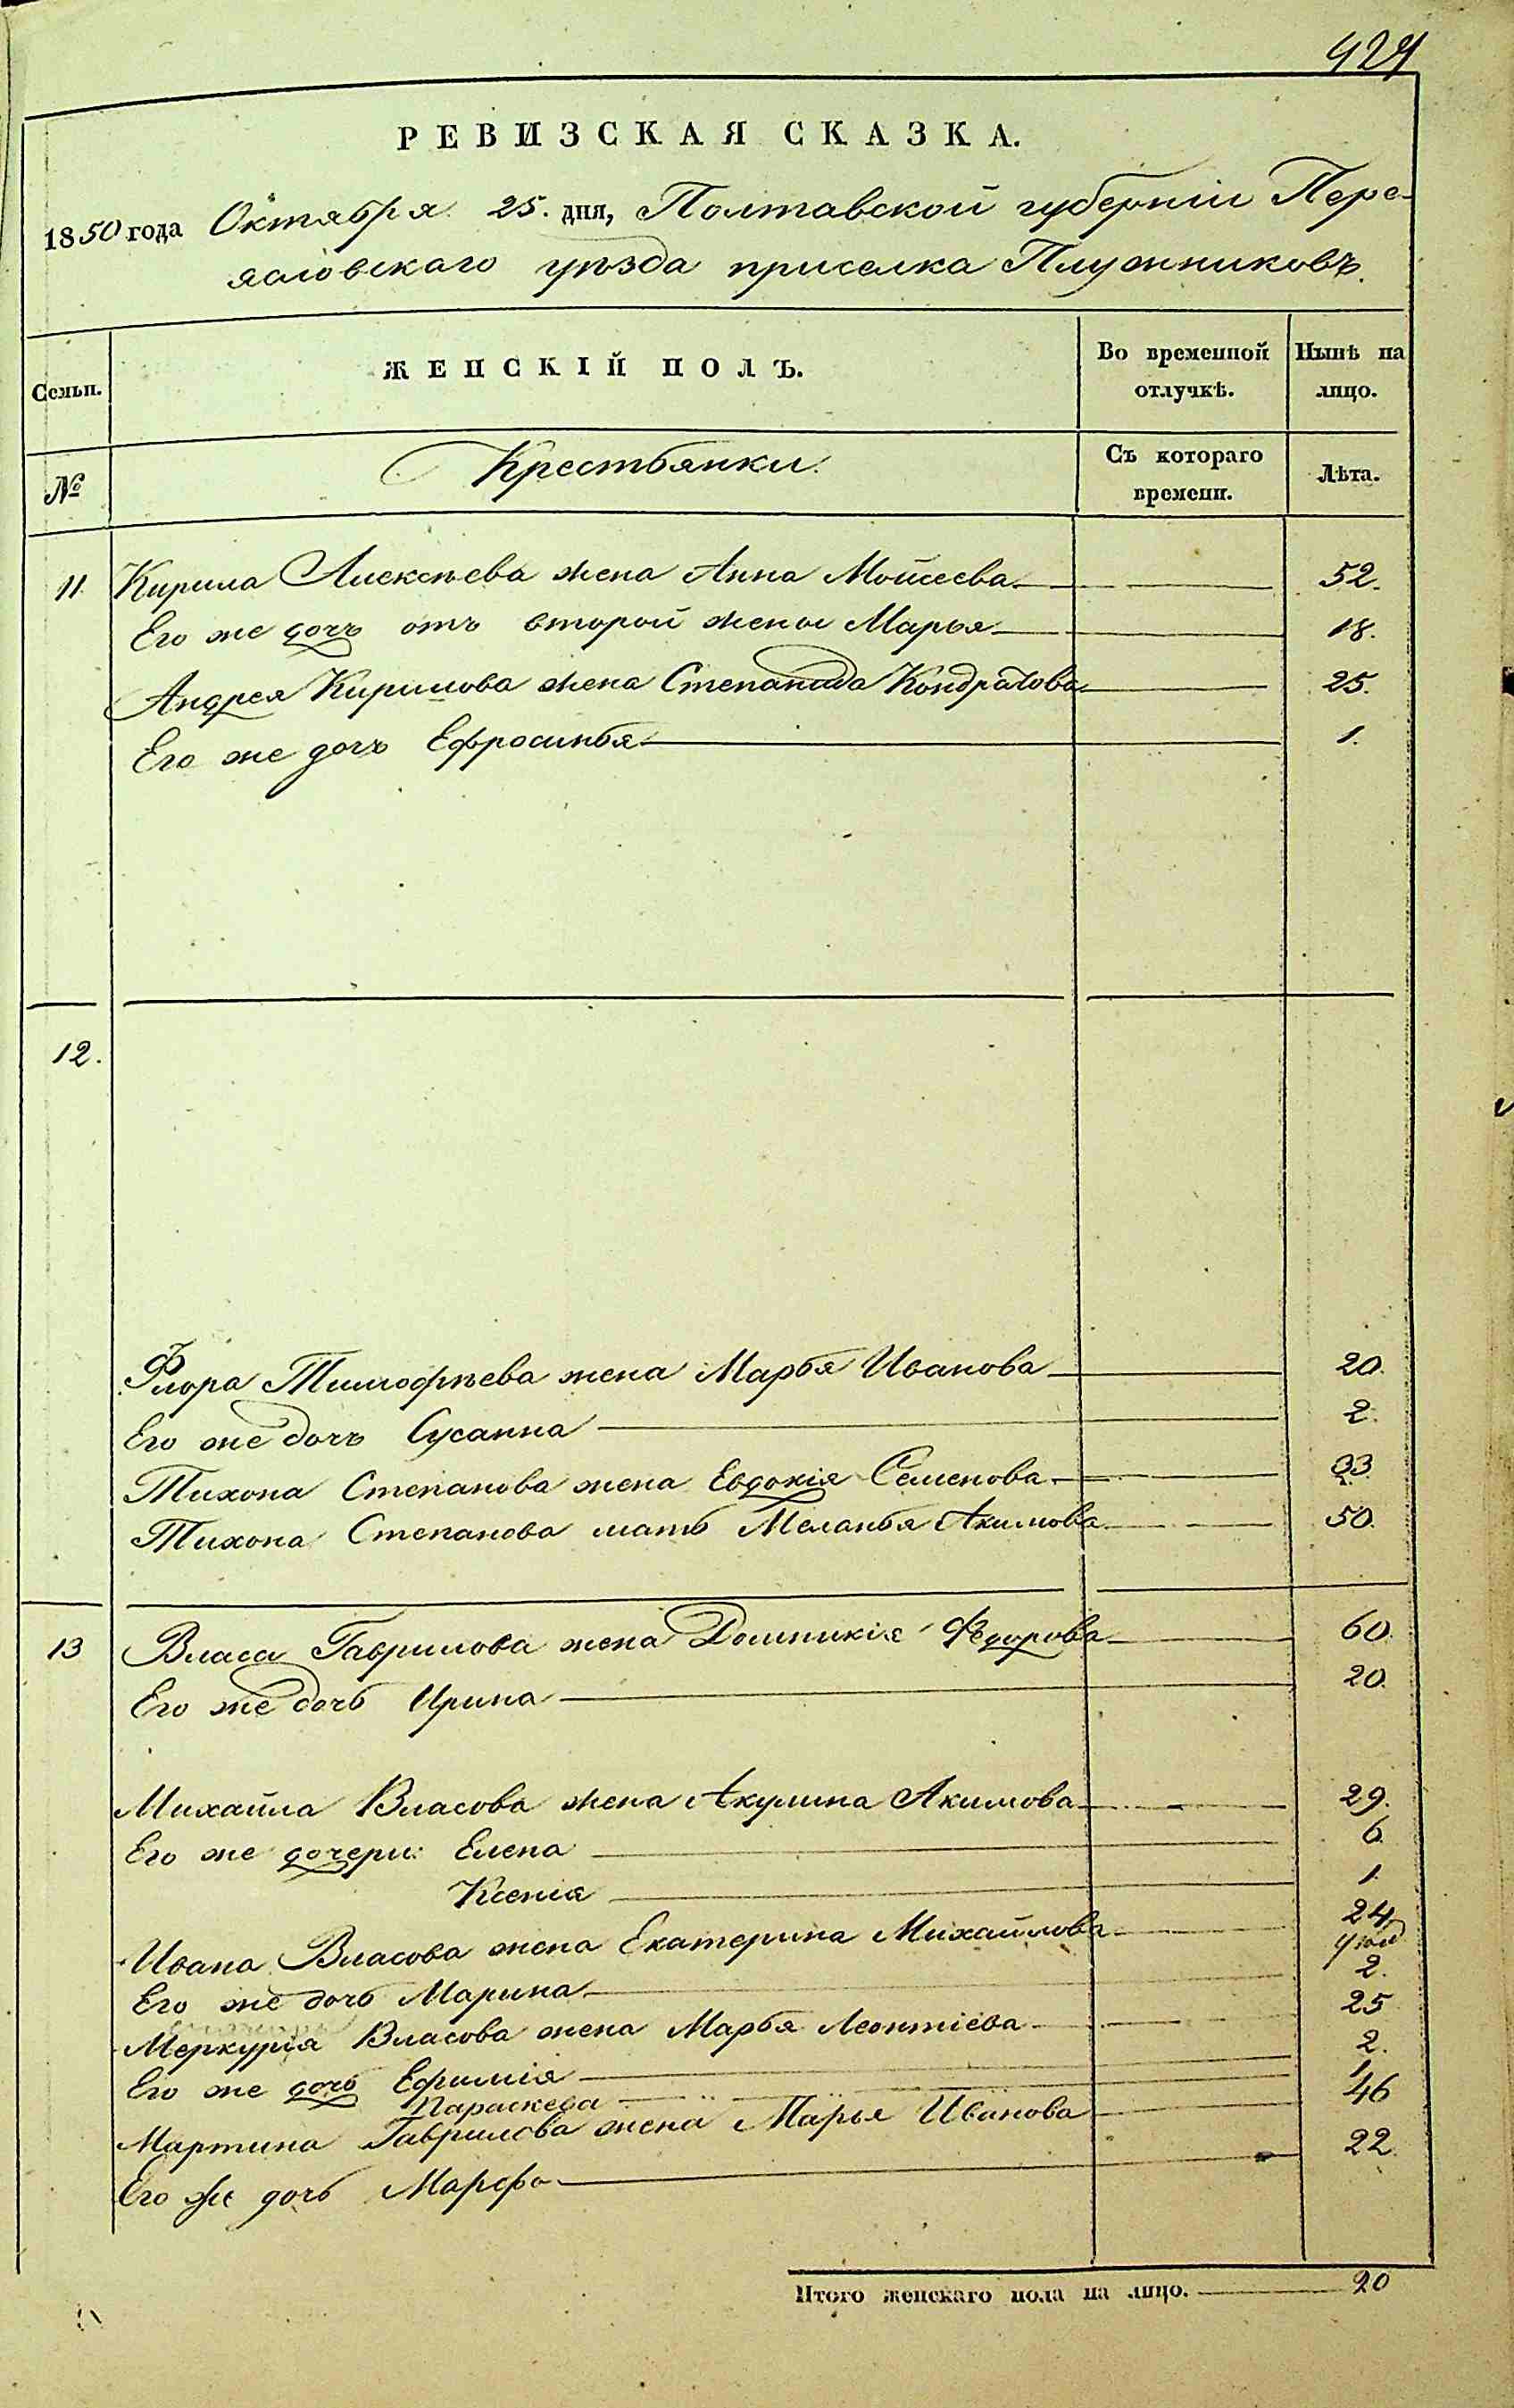 424
РЕВИЗСКАЯ СКАЗКА.
1850 года Октября 25. дня, Полтавской губерніи Пере-
яславскаго уѣзда приселка Плужниковъ.
Семьи.
ЖЕНСКІЙ ПОЛЪ.
Во временной отлучкѣ.
Нынѣ на лицо.
№
Крестьянки.
Съ котораго времени.
Лѣта.
11. Кирила Алексѣева жена Анна Мойсеева 52.
Его же дочь отъ второй жены Марья 18.
Андрея Кирилова жена Степанида Кондратова 25.
Его же дочь Ефросинья 1.
12.
Флора Тимофѣева жена Марья Иванова 20.
Его же дочь Сусанна 2.
Тихона Степанова жена Евдокія Семенова 23.
Тихона Степанова мать Меланья Акимова 50.
13 Власа Гаврилова жена Домникія Федорова 60.
Его же дочь Ирина 20.
Михайла Власова жена Акулина Акимова 29.
Его же дочери: Елена 6.
Ксенія 1.
Ивана Власова жена Екатерина Михайлова 24
Его же дочь Марина 2.
Меркурія Власова жена Марья Леонтіева 25
Его же дочь Ефимія 2.
Параскева
Мартина Гаврилова жена Марья Иванова 46
Его же дочь Марфа 22.
Итого женскаго пола на лицо. 20